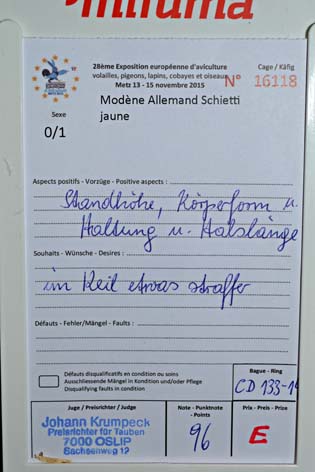 mifuma
28ème Exposition européenne d'aviculture
volailles, pigeons, lapins, cobayes et oiseaux
Metz 13 - 15 novembre 2015
Cage / Käfig
N° 16118
Modène Allemand Schietti
jaune
Sexe
0/1
Aspects positifs - Vorzüge - Positive aspects :
Standhöhe, Körperform u.
Haltung u. Halslänge
Souhaits - Wünsche - Desires :
im Keil etwas straffer
Défauts - Fehler/Mängel - Faults :
Défauts disqualificatifs en condition ou soins
Ausschliessende Mängel in Kondition und/oder Pflege
Disqualifying faults in condition
Bague - Ring
CD 133-14
Juge / Preisrichter / Judge
Johann Krumpeck
Preisrichter für Tauben
7000 OSLIP
Sachsenweg 12
Note - Punktnote - Points
96
Prix - Preis - Prize
E